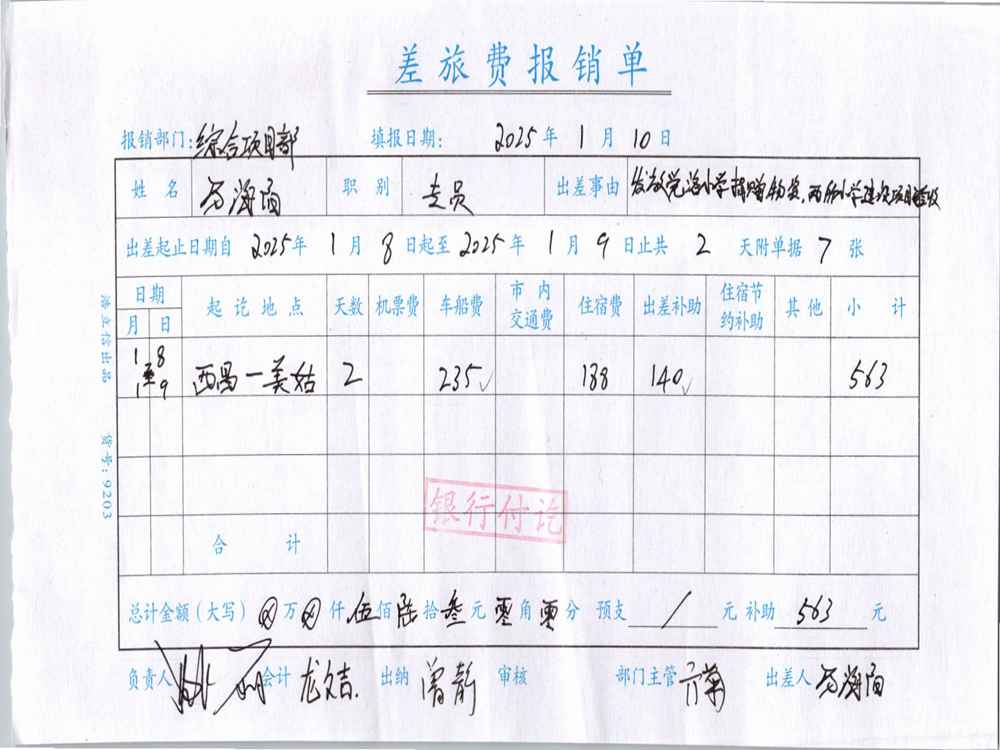 差旅费报销单
报销部门:综合项目部 填报日期: 2025年1月10日
姓名 海 职别 专员 出差事由 发放党 小学捐赠物资,两所小学建设项目验收
出差起止日期自2025年1月8日起至2025年1月9日止共2天附单据7张
日期 起讫地点 天数 机票费 车船费 市内交通费 住宿费 出差补助 住宿节约补助 其他 小计
月 日
1 8 至 1 9 西昌一美姑 2 235 188 140 563
银行付讫
合计
总计金额(大写) 万 仟伍佰陆拾叁元零角零分 预支 / 元 补助 563 元
负责人 会计 龙 出纳 曾静 审核 部门主管 出差人 海
货号:9203